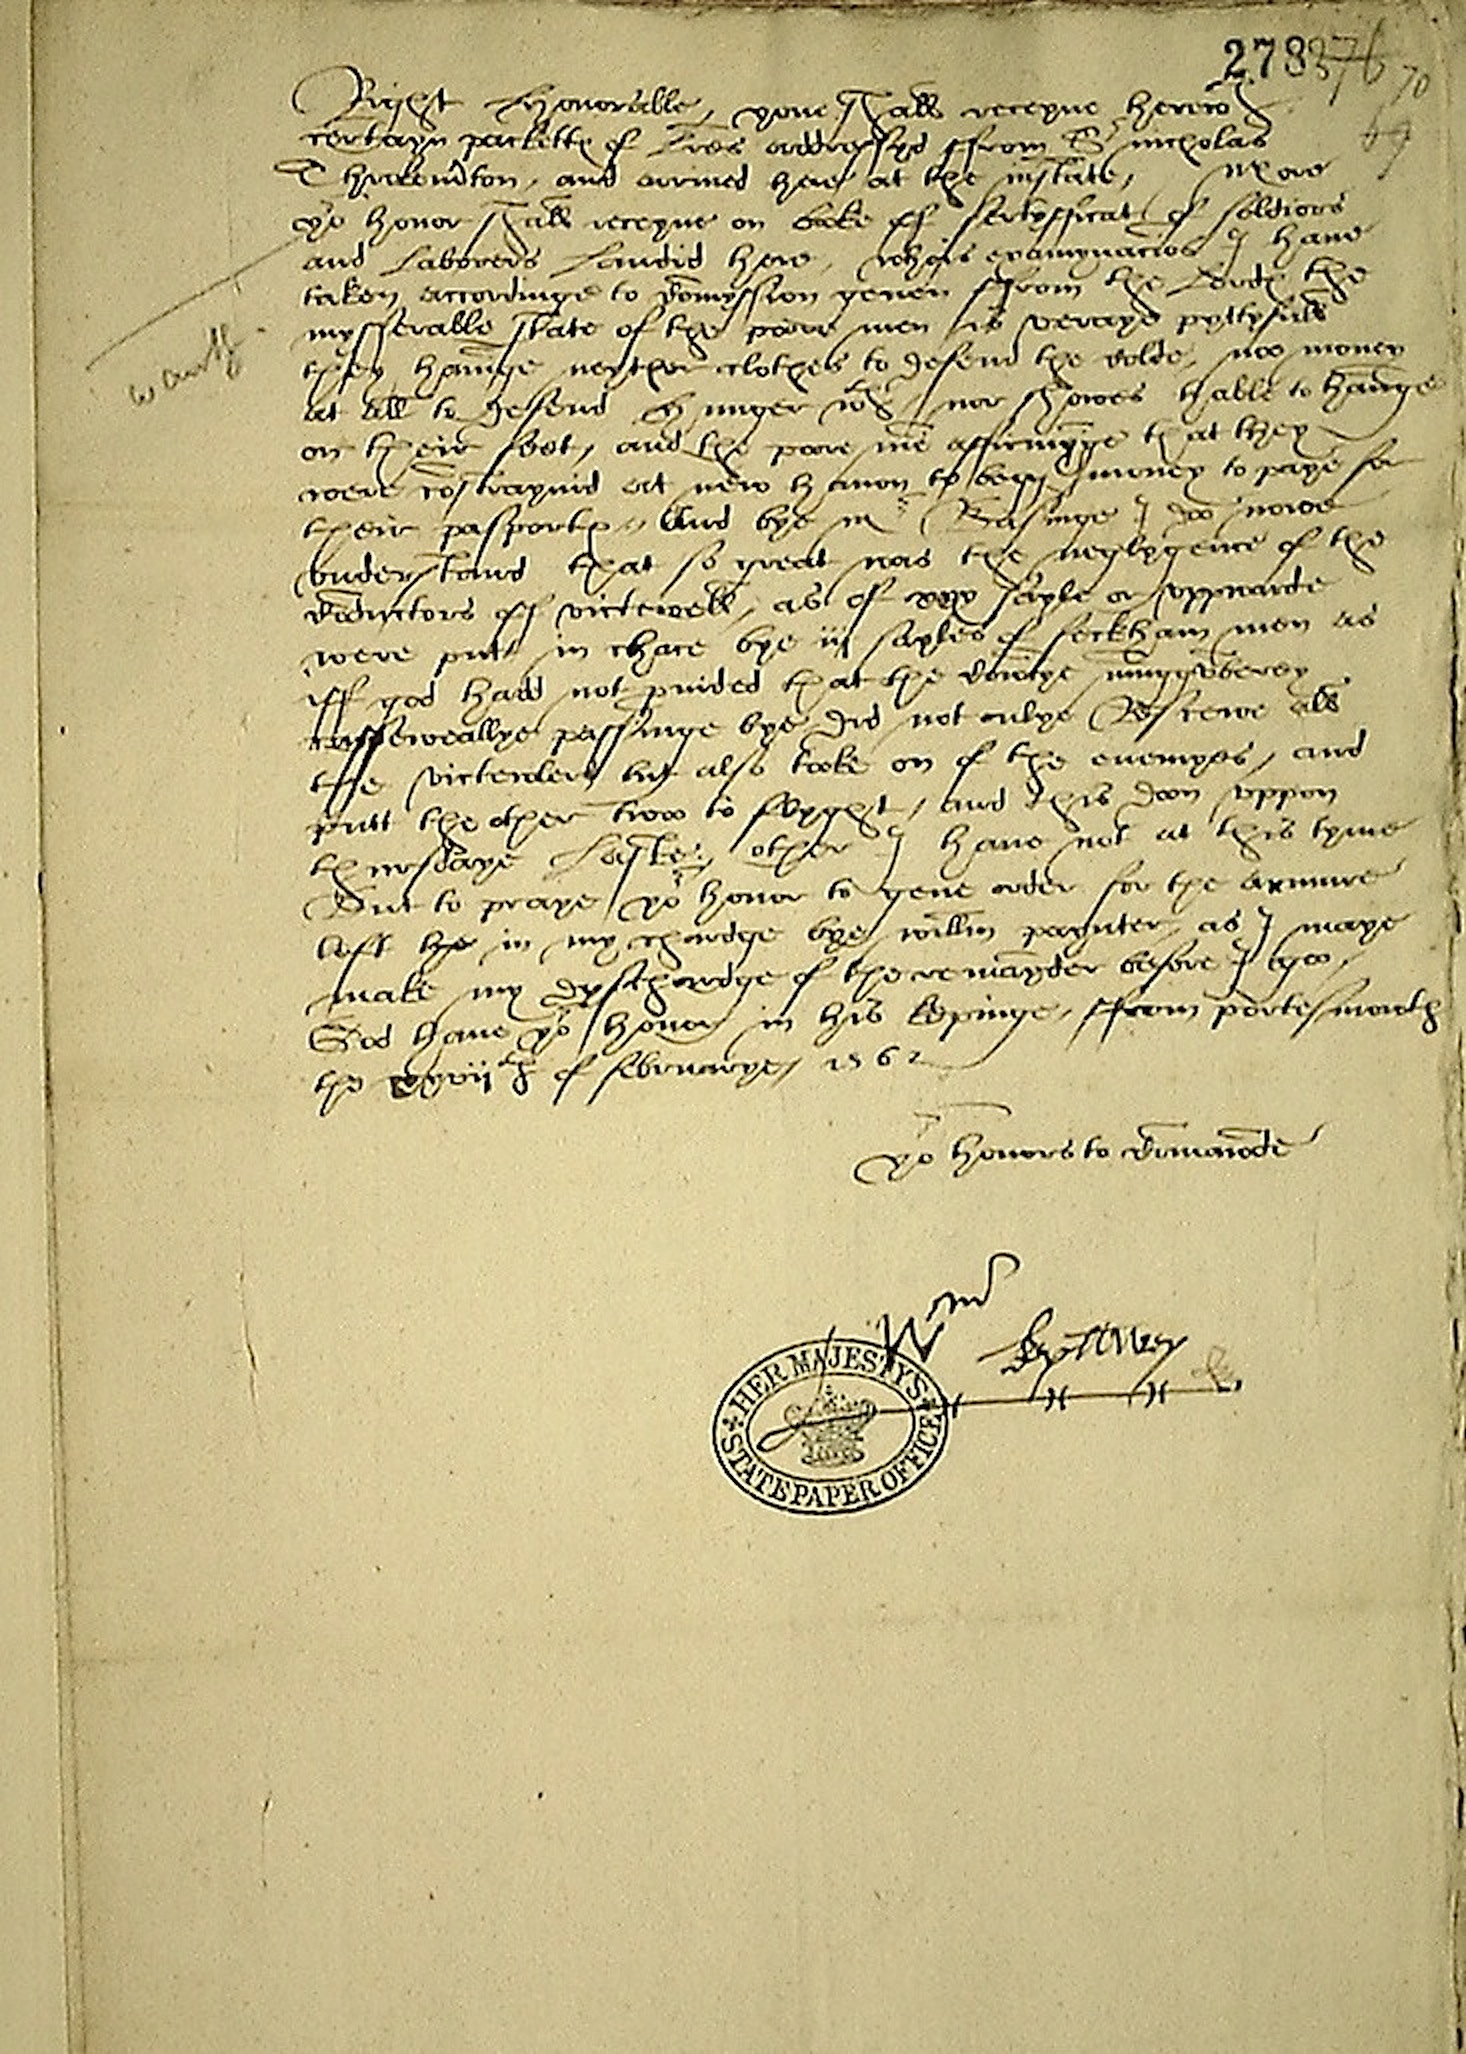 278 376 70
69
Right honorable, youe shall receyve herewth
certayn packettes of lres addressyd ffrom Sr nicholas
Throkemrton, and arrived here at the instāte, More
yor honor shall receyve on boke of sertyfficat of soldiors
and laborers landid here, whois examynacios I have
taken accordinge to comyssion geven ffrom the Lordes the
mysserable state of the poore men is veraye pyttyfull
they havinge neyther clothes to defend the colde, noo money
at all to defend hunger wth nor showes hable to hange
on their foot, and the poore mē affirmynge that they
were costraynid at new haven to begg money to paye for
their pasportes And bye mr Basinge I doo nowe
understand that so great was the neglygence of the
coductors off victewell, as of xxx sayle or uppwarde
were put in chace bye iij sayles of feckham men as
iff god hadd not pvided that the
passinge bye did not onlye Rescewe all
the victewlers but also tooke on of the enemyes, and
putt the other twoo to flyght, and this doon uppon
thursdaye laste, other I have not at this tyme
But to praye yor honor to geve order for the armure
left her in my chardge bye willm paynter, as I maye
make my dyschardge of the remaynder before I goo,
God have yor honor in his kepinge, ffrom portesmouth
the xxviith of februarye, 1562
yor honors to comaunde
Wm
HER MAJESTYS
STATE PAPER OFFICE